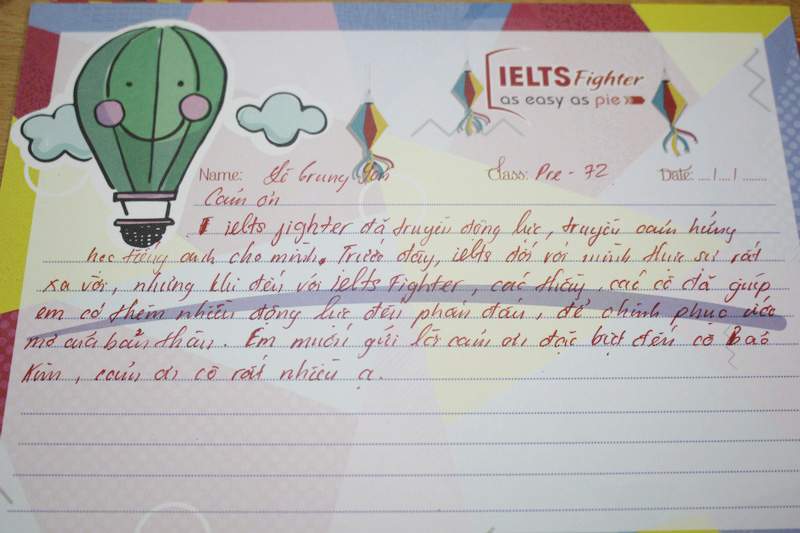 IELTS Fighter
as easy as pie
Name: Lê Trung Sơn Class: Pre - 72 Date: ..../..../........
Cảm ơn
ielts fighter đã truyền động lực, truyền cảm hứng
học tiếng anh cho mình. Trước đây, ielts đối với mình thực sự rất
xa vời, nhưng khi đến với ielts Fighter, các thầy, các cô đã giúp
em có thêm nhiều động lực để phấn đấu, để chinh phục ước
mơ của bản thân. Em muốn gửi lời cảm ơn đặc biệt đến cô Bảo
Kim, cảm ơn cô rất nhiều ạ.